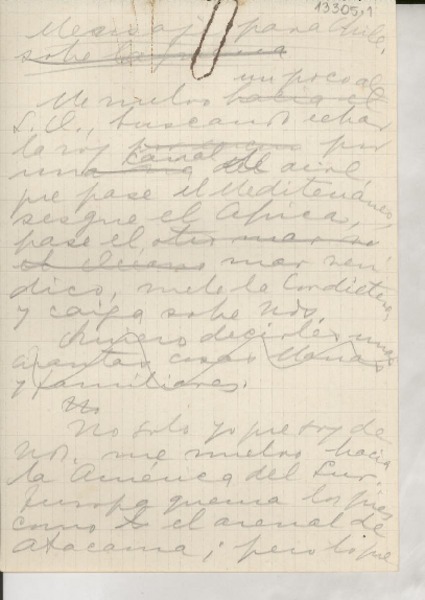 13305,1
Mensaje para Chile,
sobre la
un poco al
Me vuelvo hacia el
S.O., buscando echar
la voz por
una canal del aire
que pase el Mediterráneo,
sesgue el Africa,
pase el otro mar
el Oceano mar ven
dico, mete la Cordillera,
y caiga sobre Uds.
Quiero decirles unas
cuantas cosas llanas
y familiares.
No
No solo yo que soy de
Uds. me vuelvo hacia
la América del Sur.
Europa quema los pies
como el arenal de
Atacama; pero lo que